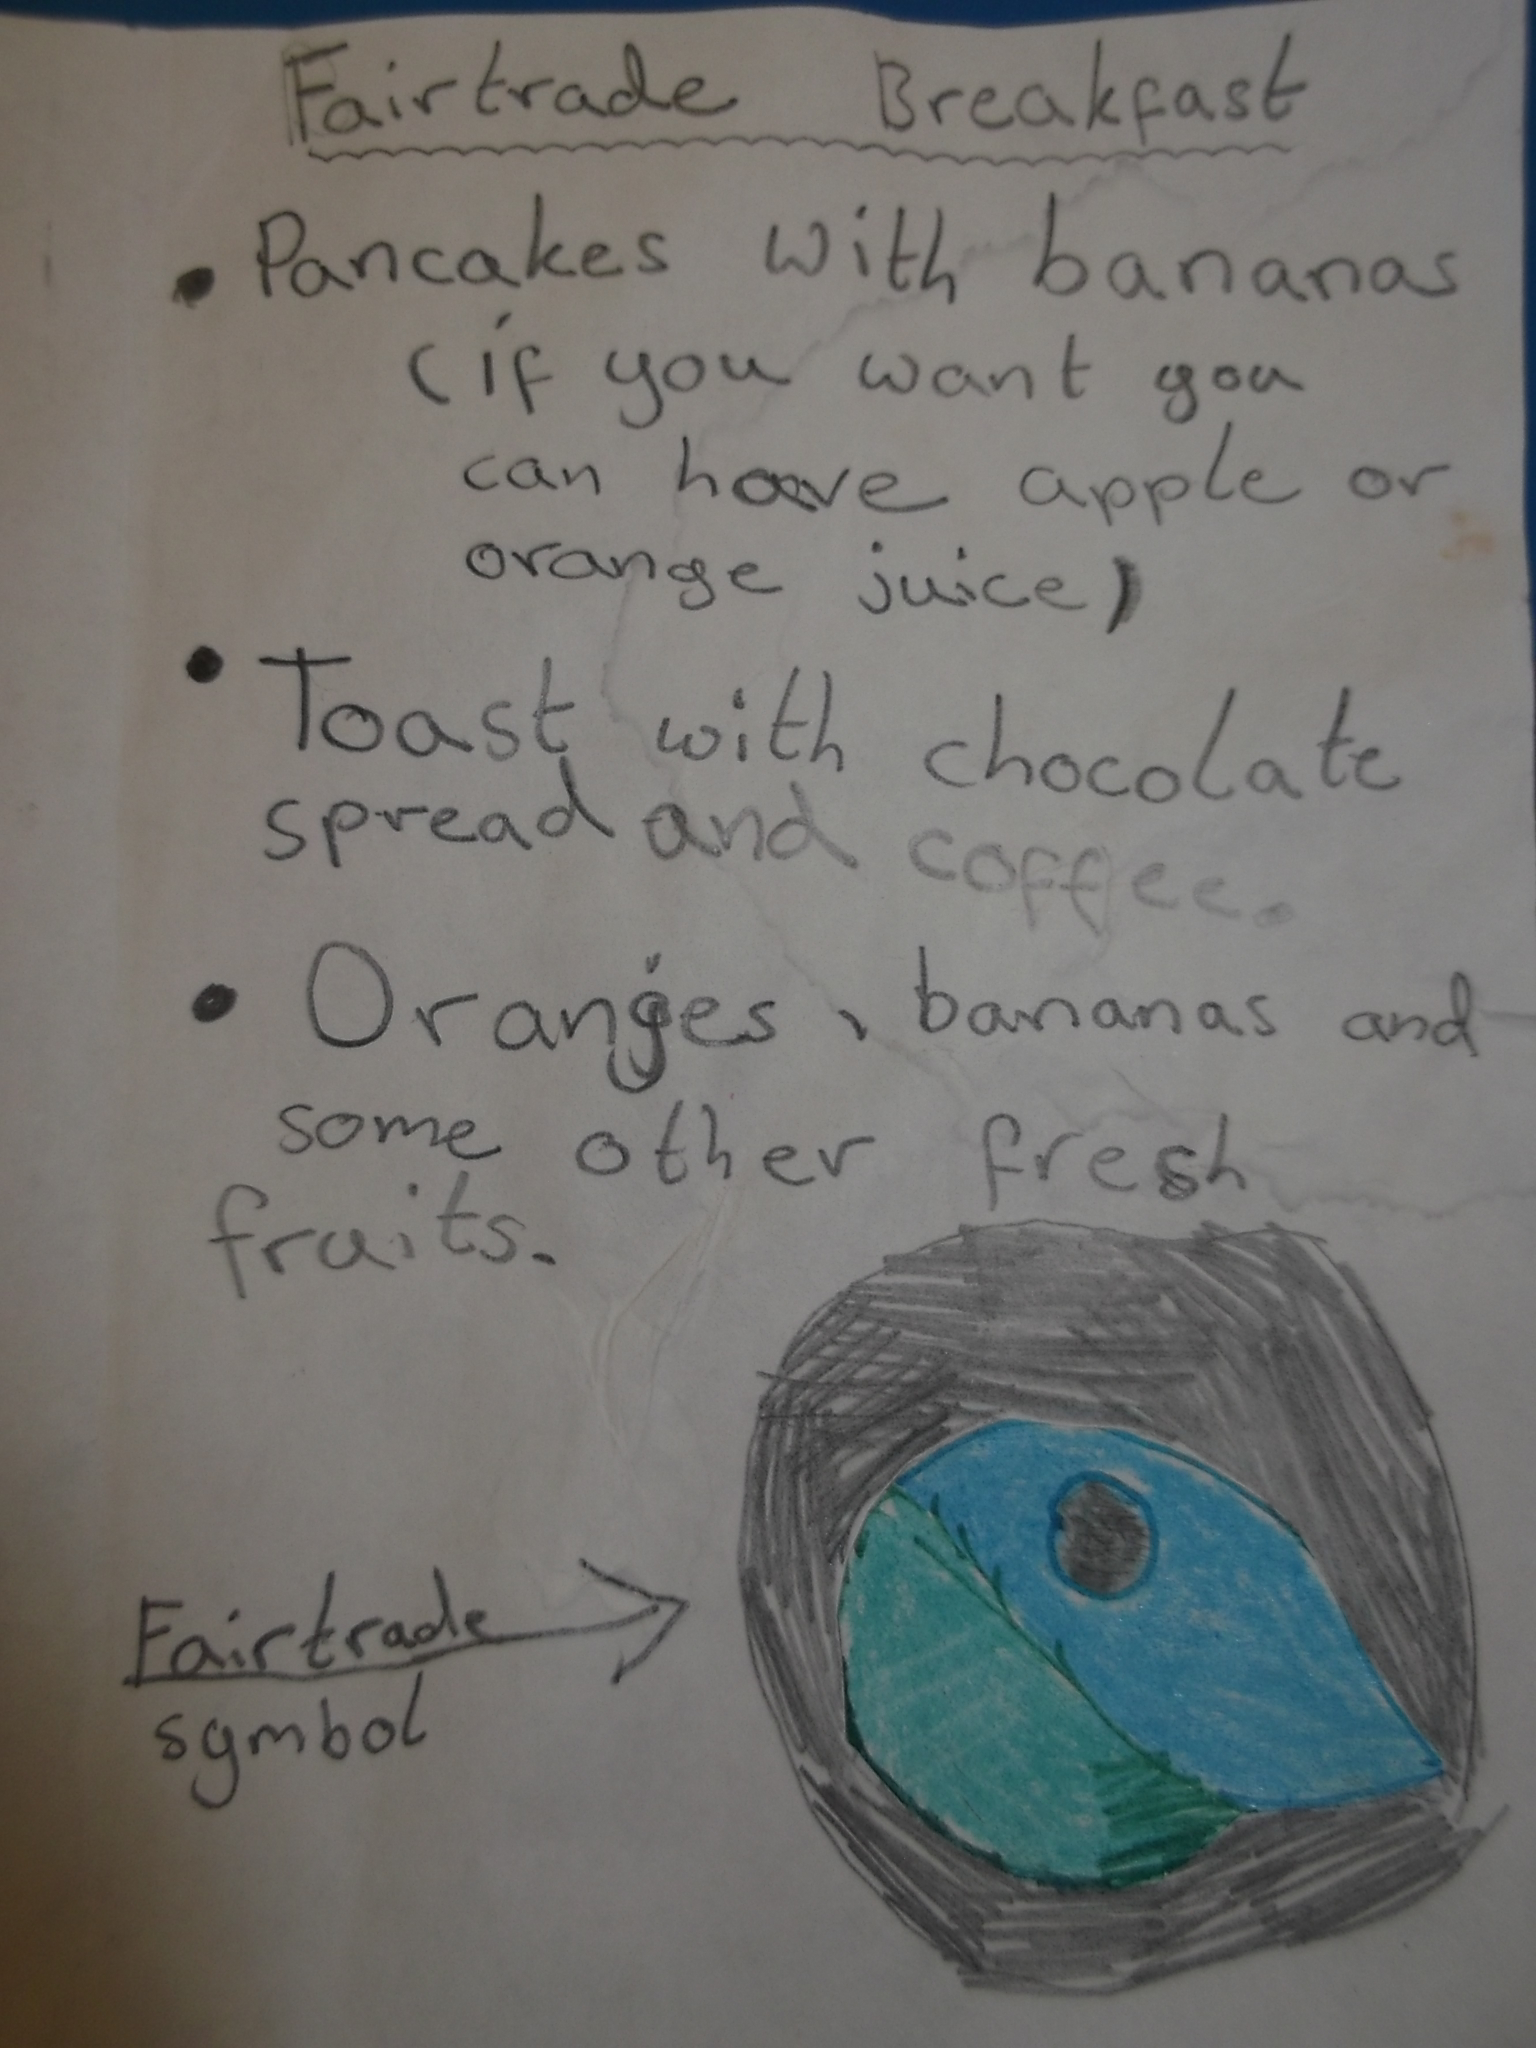 Fairtrade Breakfast
• Pancakes with bananas
(if you want you
can have apple or
orange juice)
• Toast with chocolate
spread and coffee.
• Oranges, bananas and
some other fresh
fruits.
Fairtrade
symbol